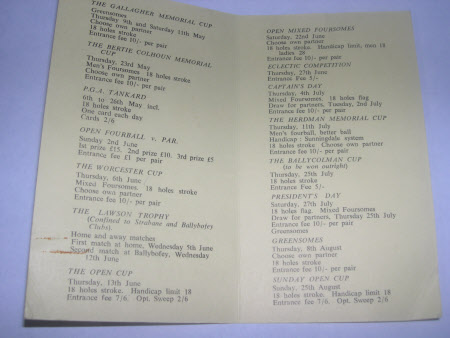 THE GALLAGHER MEMORIAL CUP
Greensomes
Thursday 9th and Saturday 11th May
Choose own partner
18 holes stroke
Entrance fee 10/- per pair
THE BERTIE COLHOUN MEMORIAL
CUP
Thursday, 23rd May
Men's Foursomes 18 holes stroke
Choose own partner
Entrance fee 10/- per pair
P.G.A. TANKARD
6th to 26th May incl.
18 holes stroke
One card each day
Cards 2/6
OPEN FOURBALL v. PAR.
Sunday 2nd June
1st prize £15. 2nd prize £10. 3rd prize £5
Entrance fee £1 per pair
THE WORCESTER CUP
Thursday, 6th June
Mixed Foursomes. 18 holes stroke
Choose own partner
Entrance fee 10/- per pair
THE LAWSON TROPHY
(Confined to Strabane and Ballybofey
Clubs).
Home and away matches
First match at home, Wednesday 5th June
Second match at Ballybofey, Wednesday
12th June
THE OPEN CUP
Thursday, 13th June
18 holes stroke. Handicap limit 18
Entrance fee 7/6. Opt. Sweep 2/6
OPEN MIXED FOURSOMES
Saturday, 22nd June
Choose own partner
18 holes stroke. Handicap limit, men 18
ladies 28
Entrance fee 10/- per pair
ECLECTIC COMPETITION
Thursday, 27th June
Entrance Fee 5/-
CAPTAIN'S DAY
Thursday, 4th July
Mixed Foursomes. 18 holes flag
Draw for partners, Tuesday, 2nd July
Entrance fee 10/- per pair
THE HERDMAN MEMORIAL CUP
Thursday, 11th July
Men's fourball, better ball
Handicap: Sunningdale system
18 holes stroke Choose own partner
Entrance fee 10/- per pair
THE BALLYCOLMAN CUP
(to be won outright)
Thursday, 25th July
18 holes stroke
Entrance Fee 5/-
PRESIDENT'S DAY
Saturday, 27th July
18 holes flag. Mixed Foursomes
Draw for partners, Thursday 25th July
Entrance fee 10/- per pair
Greensomes
GREENSOMES
Thursday, 8th August
Choose own partner
18 holes stroke
Entrance fee 10/- per pair
SUNDAY OPEN CUP
Sunday, 25th August
18 holes stroke. Handicap limit 18
Entrance fee 7/6. Opt. Sweep 2/6